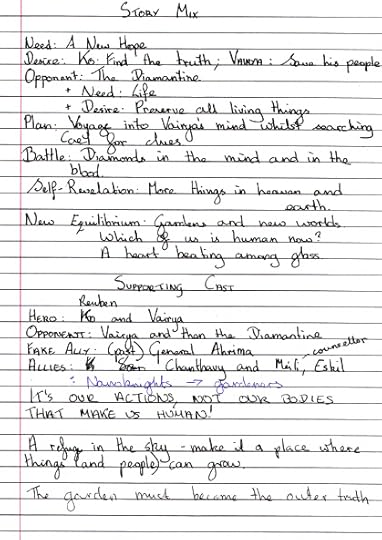 STORY MIX
Need: A New Hope
Desire: Ko: Find the truth; VAIRYA: Save his people
Opponent: The Diamantine
+ Need: Life
+ Desire: Preserve all living things
Plan: Voyage into Vairya's mind whilst searching
for clues
Battle: Diamonds in the mind and in the
blood.
Self-Revelation: More things in heaven and
earth.
New Equilibrium: Gardens and new worlds.
Which of us is human now?
A heart beating among glass
SUPPORTING CAST
Reuben
HERO: Ko and Vairya
OPPONENT: Vairya and then the Diamantine
FAKE ALLY: General Ahrima
counsellor
ALLIES: Chanthavy and Meili, Eskil
: Nanoknights → gardeners
IT'S OUR ACTIONS, NOT OUR BODIES
THAT MAKE US HUMAN!
A refuge in the sky - make it a place where
things (and people) can grow.
The garden must become the outer truth